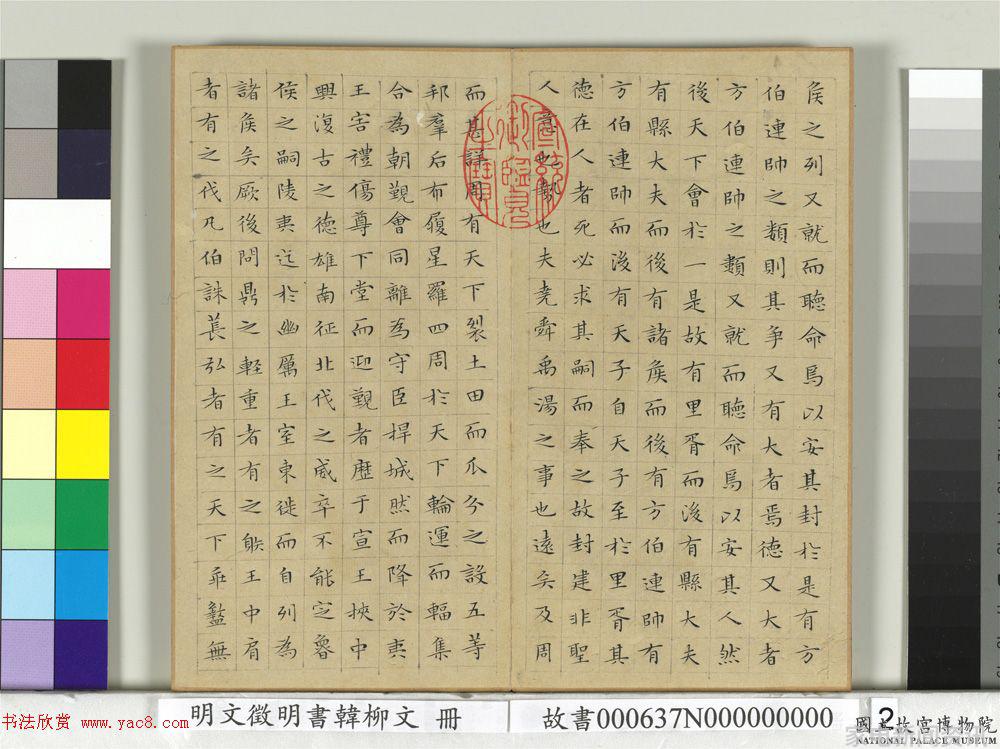 侯之列又就而聽命焉以安其封於是有方
伯連帥之類則其争又有大者焉德又大者
方伯連帥之類又就而聽命焉以安其人然
後天下會於一是故有里胥而後有縣大夫
有縣大夫而後有諸侯而後有方伯連帥有
方伯連帥而後有天子自天子至於里胥其
德在人者死必求其嗣而奉之故封建非聖
人意也勢也夫堯舜禹湯之事也遠矣及周
而甚詳周有天下裂土田而瓜分之設五等
邦羣后布履星羅四周於天下輪運而輻集
合為朝覲會同離為守臣捍城然而降於夷
王害禮傷尊下堂而迎覲者歷于宣王挾中
興復古之德雄南征北伐之威卒不能定魯
侯之嗣陵夷迄於幽厲王室東徙而自列為
諸侯矣厥後問鼎之輕重者有之射王中肩
者有之伐凡伯誅萇弘者有之天下乖盭無
宣統御覽之寶
明文徵明書韓柳文 冊
故書000637N000000000
2
國立故宮博物院
NATIONAL PALACE MUSEUM
书法欣赏
www.yac8.com